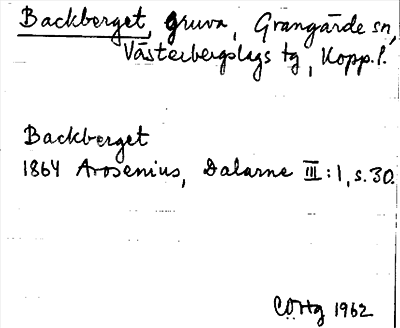 Backberget, gruva, Grangärde sn,
Västerbergslags tg, Kopp.l.
Backberget
1864 Arosenius, Dalarne III:1, s.30.
CÖHg 1962